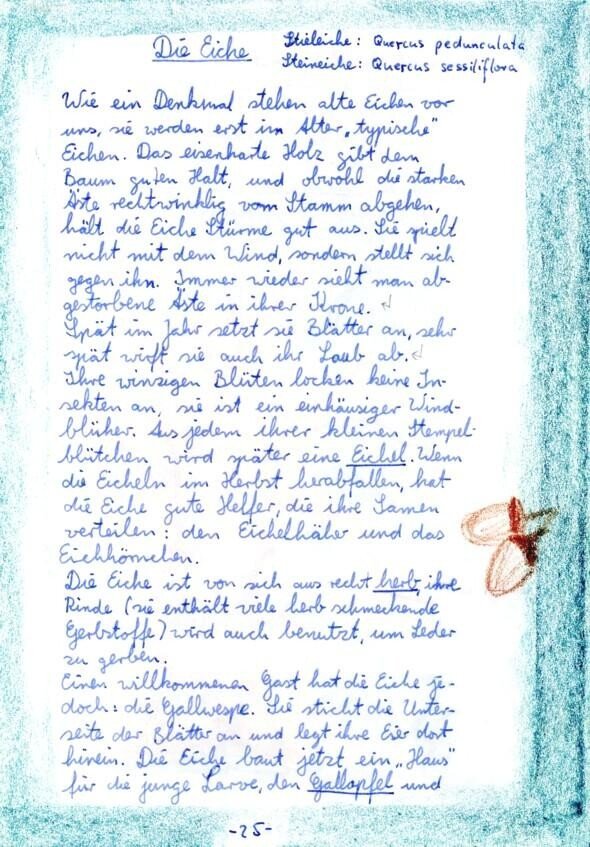 Die Eiche
Stieleiche: Quercus pedunculata
Steineiche: Quercus sessiliflora
Wie ein Denkmal stehen alte Eichen vor
uns, sie werden erst im Alter „typische“
Eichen. Das eisenharte Holz gibt dem
Baum guten Halt, und obwohl die starken
Äste rechtwinklig vom Stamm abgehen,
hält die Eiche Stürme gut aus. Sie spielt
nicht mit dem Wind, sondern stellt sich
gegen ihn. Immer wieder sieht man ab-
gestorbene Äste in ihrer Krone.
Spät im Jahr setzt sie Blätter an, sehr
spät wirft sie auch ihr Laub ab.
Ihre winzigen Blüten locken keine In-
sekten an, sie ist ein einhäusiger Wind-
blüher. Aus jedem ihrer kleinen Stempel-
blütchen wird später eine Eichel. Wenn
die Eicheln im Herbst herabfallen, hat
die Eiche gute Helfer, die ihre Samen
verteilen: den Eichelhäher und das
Eichhörnchen.
Die Eiche ist von sich aus recht herb, ihre
Rinde (sie enthält viele herb schmeckende
Gerbstoffe) wird auch benutzt, um Leder
zu gerben.
Einen willkommenen Gast hat die Eiche je-
doch: die Gallwespe. Sie sticht die Unter-
seite der Blätter an und legt ihre Eier dort
hinein. Die Eiche baut jetzt ein „Haus“
für die junge Larve, den Gallapfel und
-25-